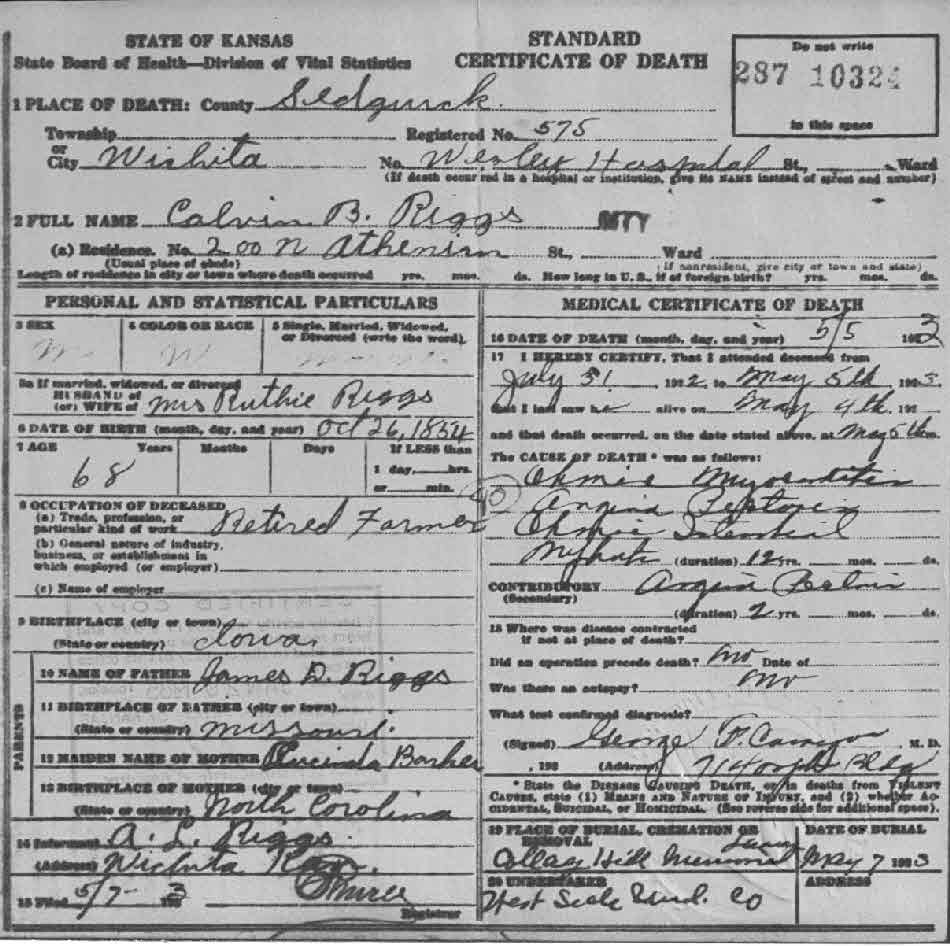 STATE OF KANSAS
State Board of Health—Division of Vital Statistics
STANDARD
CERTIFICATE OF DEATH
Do not write
287 10324
in this space
1 PLACE OF DEATH: County Sedgwick
Township Registered No. 575
or
City Wichita No. Wesley Hospital St., Ward
(If death occurred in a hospital or institution, give its NAME instead of street and number)
2 FULL NAME Calvin B. Riggs MTY
(a) Residence. No. 200 N Athenian St., Ward
(Usual place of abode) (If nonresident, give city or town and state)
Length of residence in city or town where death occurred yrs. mos. ds. How long in U. S., if of foreign birth? yrs. mos. ds.
PERSONAL AND STATISTICAL PARTICULARS
3 SEX 4 COLOR OR RACE 5 Single, Married, Widowed,
or Divorced (write the word).
M W
5a If married, widowed, or divorced
HUSBAND of
(or) WIFE of Mrs Ruthie Riggs
6 DATE OF BIRTH (month, day, and year) Oct 26, 1854
7 AGE Years Months Days If LESS than
68 1 day, hrs.
or min.
8 OCCUPATION OF DECEASED
(a) Trade, profession, or
particular kind of work Retired Farmer
(b) General nature of industry,
business, or establishment in
which employed (or employer)
(c) Name of employer
9 BIRTHPLACE (city or town)
(State or country) Iowa
PARENTS
10 NAME OF FATHER James D. Riggs
11 BIRTHPLACE OF FATHER (city or town)
(State or country) Missouri.
12 MAIDEN NAME OF MOTHER Lucinda Barker
13 BIRTHPLACE OF MOTHER (city or town)
(State or country) North Carolina
14 Informant A. L. Riggs
(Address) Wichita Kan.
15 Filed 5/7- 1923
Registrar
MEDICAL CERTIFICATE OF DEATH
16 DATE OF DEATH (month, day, and year) 5/5 1923
17 I HEREBY CERTIFY, That I attended deceased from
July 31, 1922, to May 5th, 1923,
that I last saw h alive on May 4th, 192
and that death occurred, on the date stated above, at May 5th m.
The CAUSE OF DEATH* was as follows:
Angina
(duration) 12 yrs. mos. ds.
CONTRIBUTORY
(Secondary)
(duration) 2 yrs. mos. ds.
18 Where was disease contracted
if not at place of death?
Did an operation precede death? No Date of
Was there an autopsy? No
What test confirmed diagnosis?
(Signed) George F. M. D.
, 192 (Address) Bldg
* State the DISEASE CAUSING DEATH, or in deaths from VIOLENT
CAUSES, state (1) MEANS AND NATURE OF INJURY, and (2) whether AC-
CIDENTAL, SUICIDAL, or HOMICIDAL. (See reverse side for additional space).
19 PLACE OF BURIAL, CREMATION OR
REMOVAL
Hill DATE OF BURIAL
May 7 1923
20 UNDERTAKER ADDRESS
West Side Und. Co